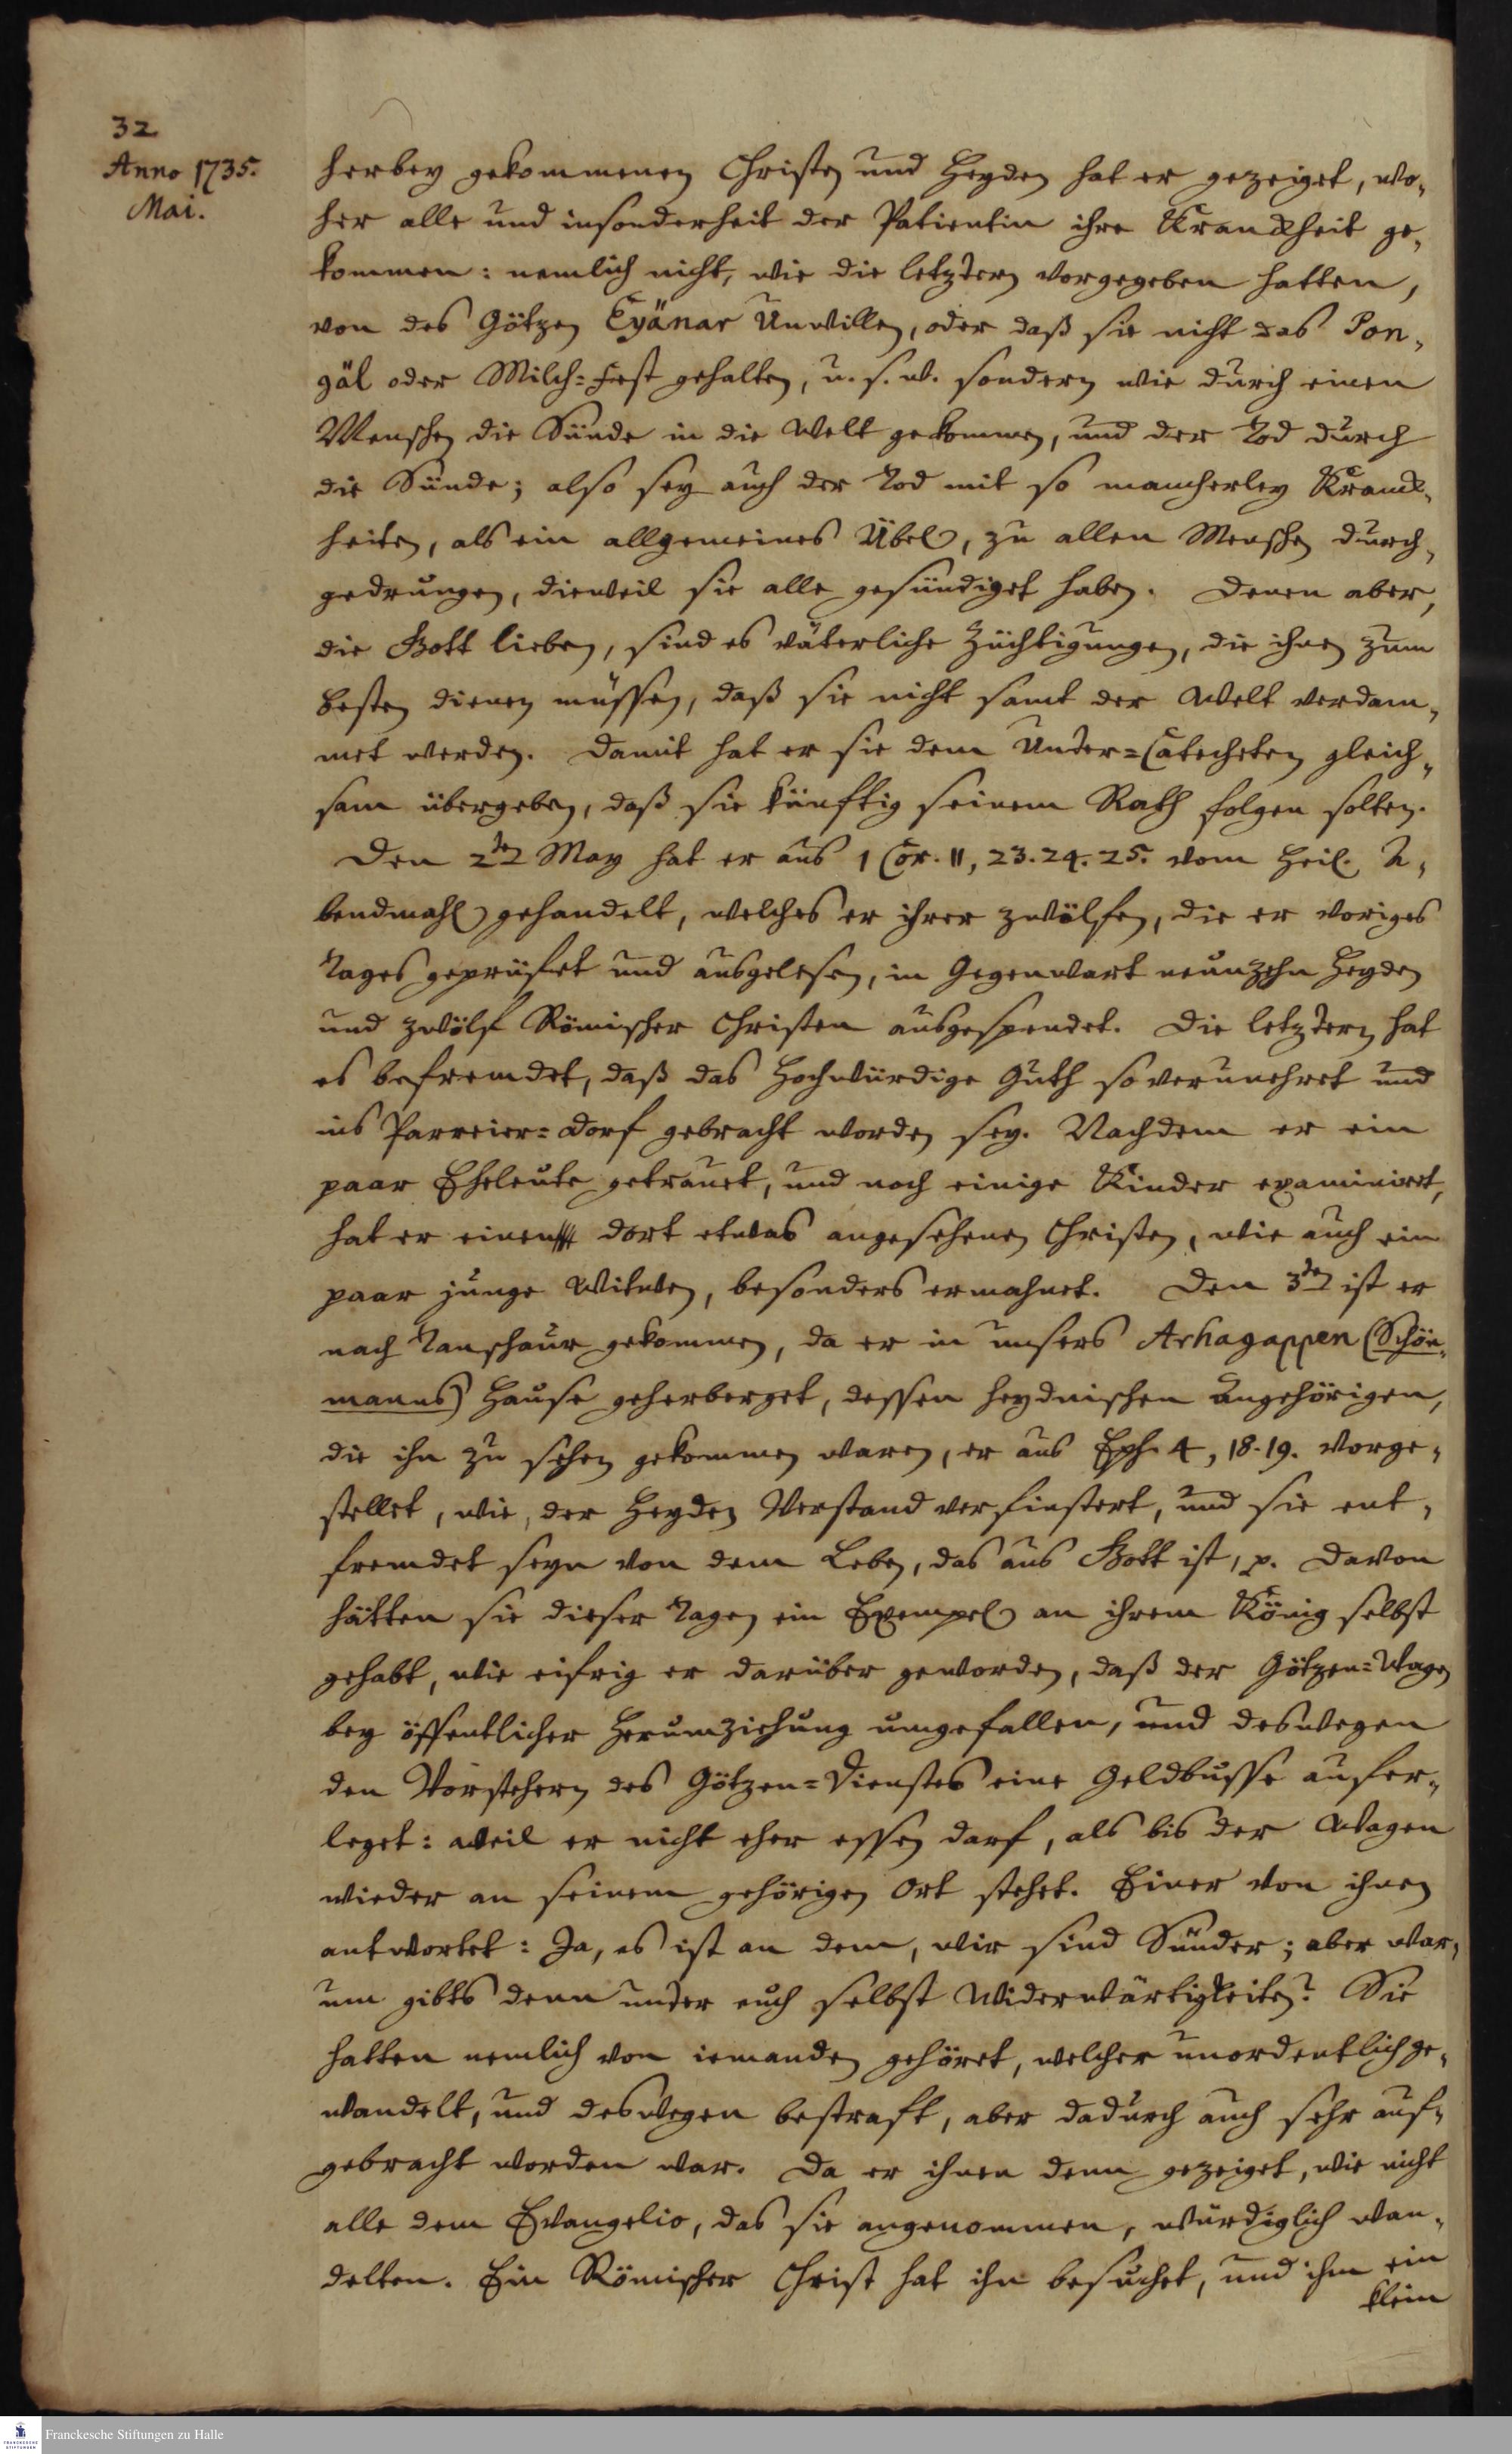 32
Anno 1735.
Mai.
herbey gekommenen Christen und Heyden hat er gezeiget, wo-
her alle und insonderheit der Patientin ihre Kranckheit ge-
kommen: nemlich nicht, wie die letztern vorgegeben hatten,
von des Götzen Eyänar Unwillen, oder daß sie nicht das Pon-
gäl oder Milch-Fest gehalten, u. s. w. sondern wie durch einen
Menschen die Sünde in die Welt gekommen, und der Tod durch
die Sünde; also sey auch der Tod mit so mancherley Kranck-
heiten, als ein allgemeines Übel, zu allen Menschen durch-
gedrungen, dieweil sie alle gesündiget haben. Denen aber,
die Gott lieben, sind es väterliche Züchtigungen, die ihnen zum
besten dienen müssen, daß sie nicht samt der Welt verdam-
met werden. Damit hat er sie dem Unter-Catecheten gleich-
sam übergeben, daß sie künftig seinem Rath folgen solten.
Den 2ten May hat er aus 1 Cor. 11, 23. 24. 25. vom Heil. A-
bendmahl gehandelt, welches er ihrer zwölfen, die er voriges
Tages geprüfet und ausgelesen, in Gegenwart neunzehn Heyden
und zwölf Römischer Christen ausgespendet. Die letztern hat
es befremdet, daß das Hochwürdige Guth so verunehret und
ins Parreier-Dorf gebracht worden sey. Nachdem er ein
paar Eheleute getrauet, und noch einige Kinder examiniret,
hat er einen dort etwas angesehenen Christen, wie auch ein
paar junge Witwen, besonders ermahnet. Den 3ten ist er
nach Tanschaur gekommen, da er in unsers Arhagappen (Schön-
manns) Hause geherberget, dessen heydnischen Angehörigen,
die ihn zu sehen gekommen waren, er aus Eph. 4, 18. 19. vorge-
stellet, wie, der Heyden Verstand verfinstert, und sie ent-
fremdet seyn von dem Leben, das aus Gott ist, p. Davon
hätten sie dieser Tagen ein Exempel an ihrem König selbst
gehabt, wie eifrig er darüber geworden, daß der Götzen-Wagen
bey öffentlicher Herumziehung umgefallen, und deswegen
den Vorstehern des Götzen-Dienstes eine Geldbusse aufer-
leget: weil er nicht eher essen darf, als bis der Wagen
wieder an seinem gehörigen Ort stehet. Einer von ihnen
antwortet: Ja, es ist an dem, wir sind Sünder; aber war-
um gibts denn unter euch selbst Widerwärtigkeiten? Sie
hatten nemlich von iemanden gehöret, welcher unordentlich ge-
wandelt, und deswegen bestraft, aber dadurch auch sehr auf-
gebracht worden war. Da er ihnen denn gezeiget, wie nicht
alle dem Evangelio, das sie angenommen, würdiglich wan-
delten. Ein Römischer Christ hat ihn besuchet, und ihm ein
klein
Franckesche Stiftungen zu Halle